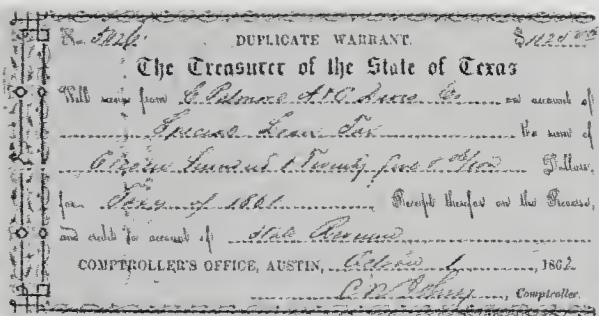 No. DUPLICATE WARRANT. $1125
The Treasurer of the State of Texas
Will receive from C. A & C Co on account of
Special Tax the sum of
Eleven Hundred & Twenty five & Dollars,
for Taxes of 1861 Receipt therefor on the Reverse,
and credit to account of State Revenue
COMPTROLLER'S OFFICE, AUSTIN, 1862
C. R. Johns, Comptroller.